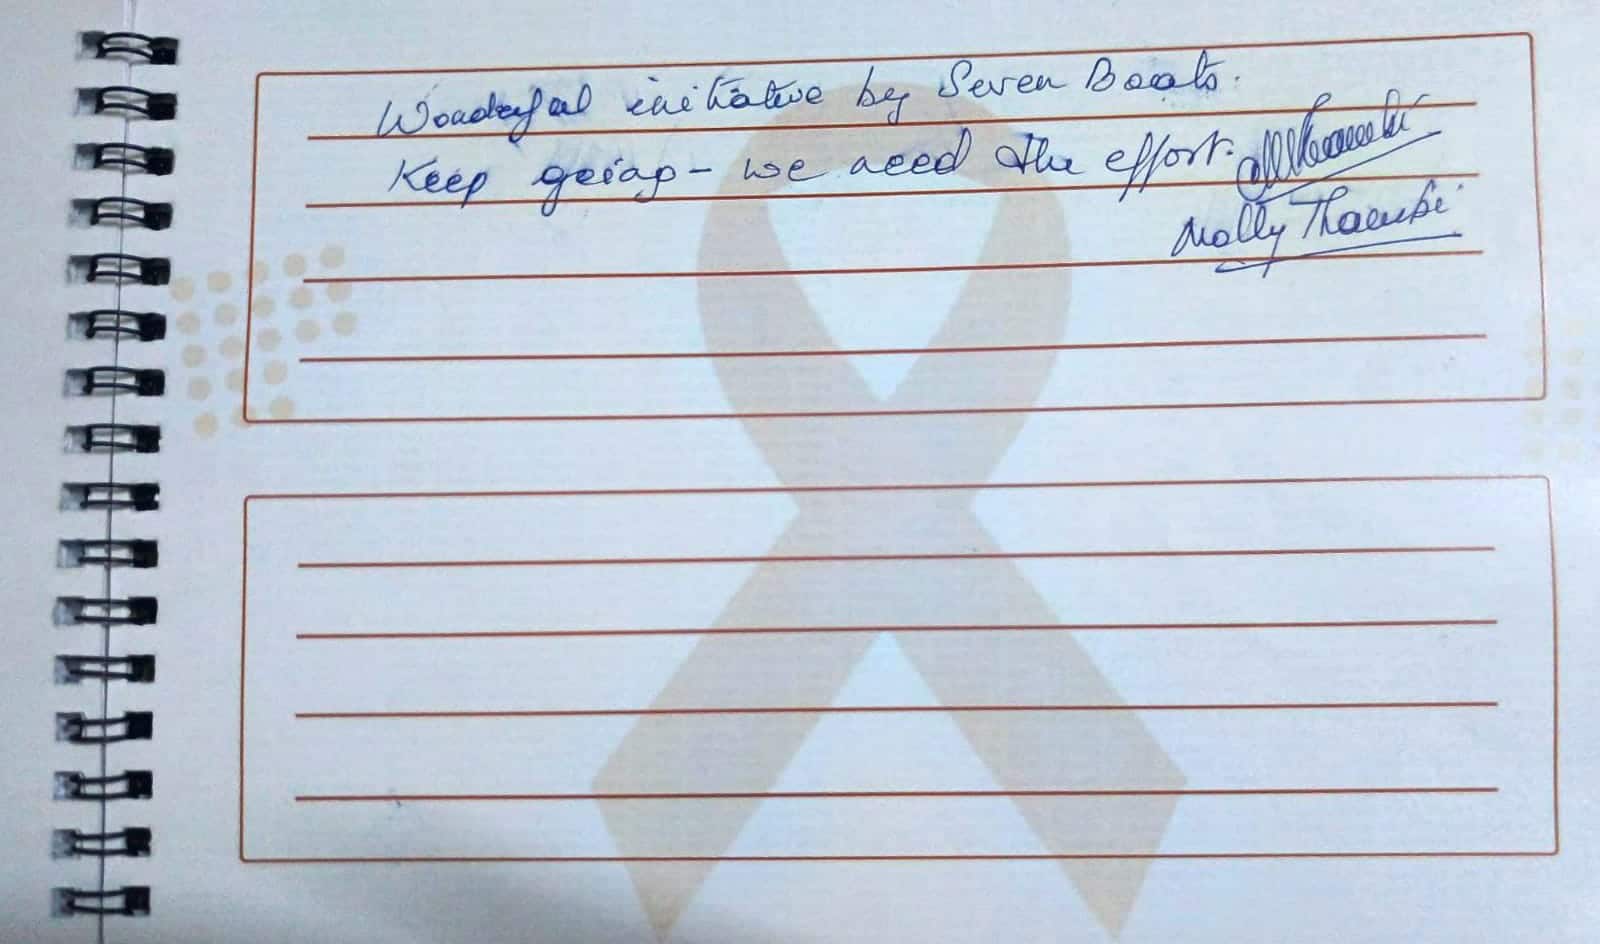 Wonderful initiative by Seven Boats.
Keep going - we need the effort.
Molly Thambi